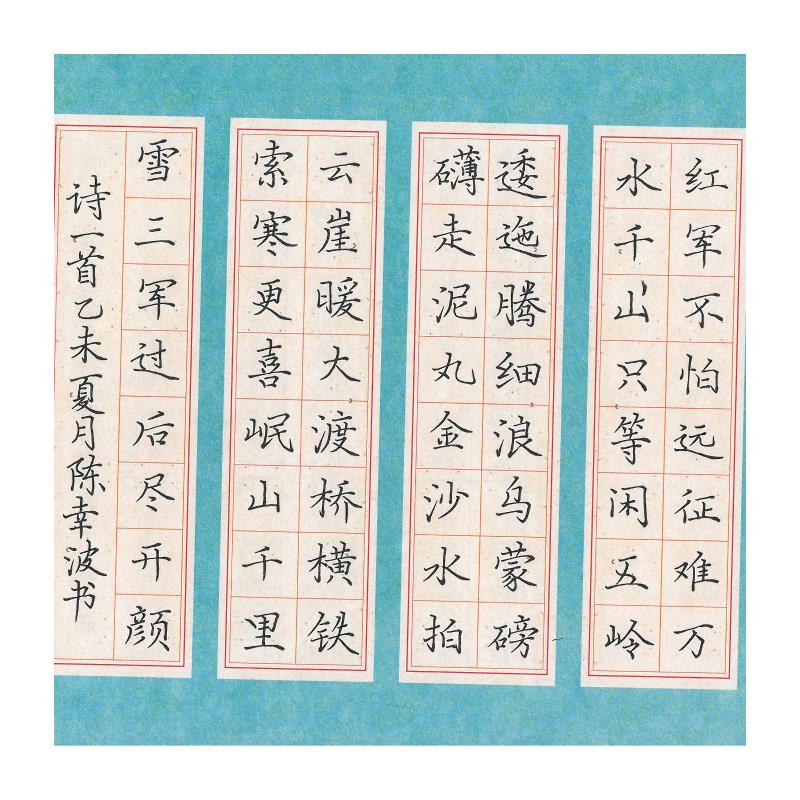 红军不怕远征难万
水千山只等闲五岭
逶迤腾细浪乌蒙磅
礴走泥丸金沙水拍
云崖暖大渡桥横铁
索寒更喜岷山千里
雪三军过后尽开颜
诗一首乙未夏月陈幸波书